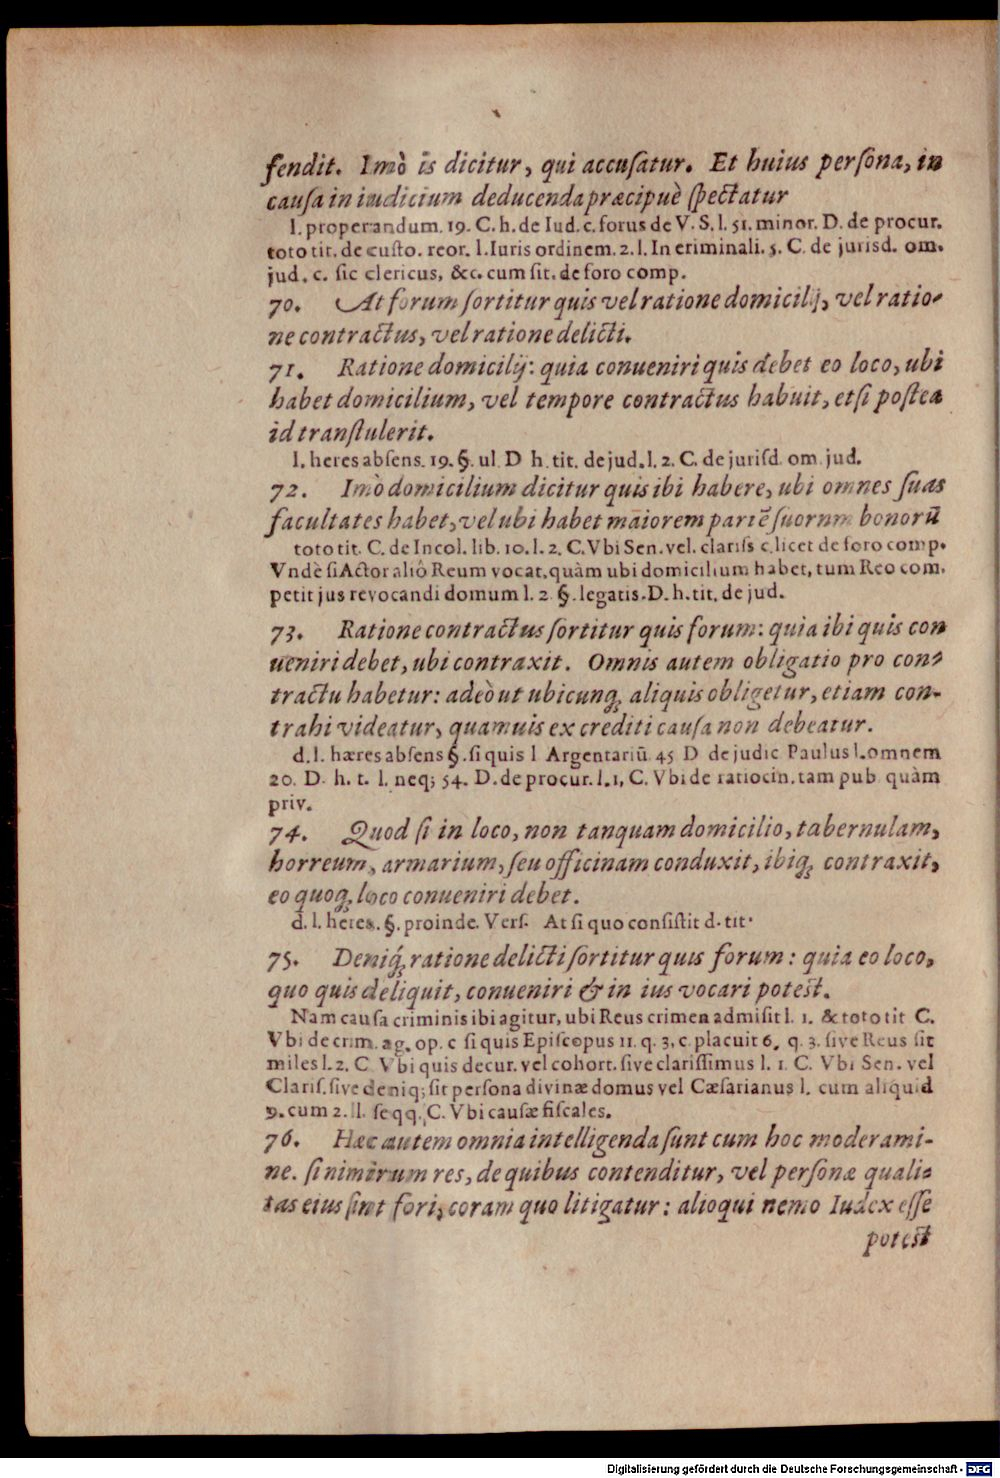 fendit. Imò is dicitur, qui accuſatur. Et huius perſona, in
cauſa in iudicium deducenda præcipuè ſpectatur
l. properandum. 19. C. h. de Iud. c. forus de V. S. l. 51. minor. D. de procur.
toto tit. de cuſto. reor. l. Iuris ordinem. 2. l. In criminali. 5. C. de jurisd. om.
jud. c. ſic clericus, &c. cum ſit. de foro comp.
70. At forum ſortitur quis vel ratione domicilij, vel ratio-
ne contractus, vel ratione delicti.
71. Ratione domicilij: quia conueniri quis debet eo loco, ubi
habet domicilium, vel tempore contractus habuit, etſi poſtea
id tranſtulerit.
l. heres abſens. 19. §. ul. D h. tit. de jud. l. 2. C. de juriſd. om. jud.
72. Imò domicilium dicitur quis ibi habere, ubi omnes ſuas
facultates habet, vel ubi habet maiorem partẽ ſuorum bonorũ
toto tit. C. de Incol. lib. 10. l. 2. C. Vbi Sen. vel. clariſs c. licet de foro comp.
Vndè ſi Actor aliò Reum vocat, quàm ubi domicilium habet, tum Reo com.
petit jus revocandi domum l. 2 §. legatis. D. h. tit. de jud.
73. Ratione contractus ſortitur quis forum: quia ibi quis con
ueniri debet, ubi contraxit. Omnis autem obligatio pro con-
tractu habetur: adeò ut ubicunq; aliquis obligetur, etiam con-
trahi videatur, quamuis ex crediti cauſa non debeatur.
d. l. hæres abſens §. ſi quis l Argentariũ 45 D de judic Paulus l. omnem
20. D. h. t. l. neq; 54. D. de procur. l. 1, C. Vbi de ratiocin. tam pub quàm
priv.
74. Quod ſi in loco, non tanquam domicilio, tabernulam,
horreum, armarium, ſeu officinam conduxit, ibiq; contraxit,
eo quoq; loco conueniri debet.
d. l. heres. §. proinde. Verſ. At ſi quo conſiſtit d. tit.
75. Deniq́; ratione delicti ſortitur quis forum: quia eo loco,
quo quis deliquit, conueniri & in ius vocari poteſt.
Nam cauſa criminis ibi agitur, ubi Reus crimen admiſit l. 1. & toto tit C.
Vbi de crim. ag. op. c ſi quis Epiſcopus 11. q. 3, c. placuit 6. q. 3. ſive Reus ſit
miles l. 2. C Vbi quis decur. vel cohort. ſive clariſſimus l. 1. C. Vbi Sen. vel
Clariſ. ſive deniq; ſit perſona divinæ domus vel Cæſarianus l. cum aliquid
9. cum 2. ll. ſeqq. C. Vbi cauſæ fiſcales.
76. Hæc autem omnia intelligenda ſunt cum hoc moderami-
ne. ſi nimirum res, de quibus contenditur, vel perſonæ quali-
tas eius ſint fori, coram quo litigatur: alioqui nemo Iudex eſſe
poteſt
Digitalisierung gefördert durch die Deutsche Forschungsgemeinschaft - DFG